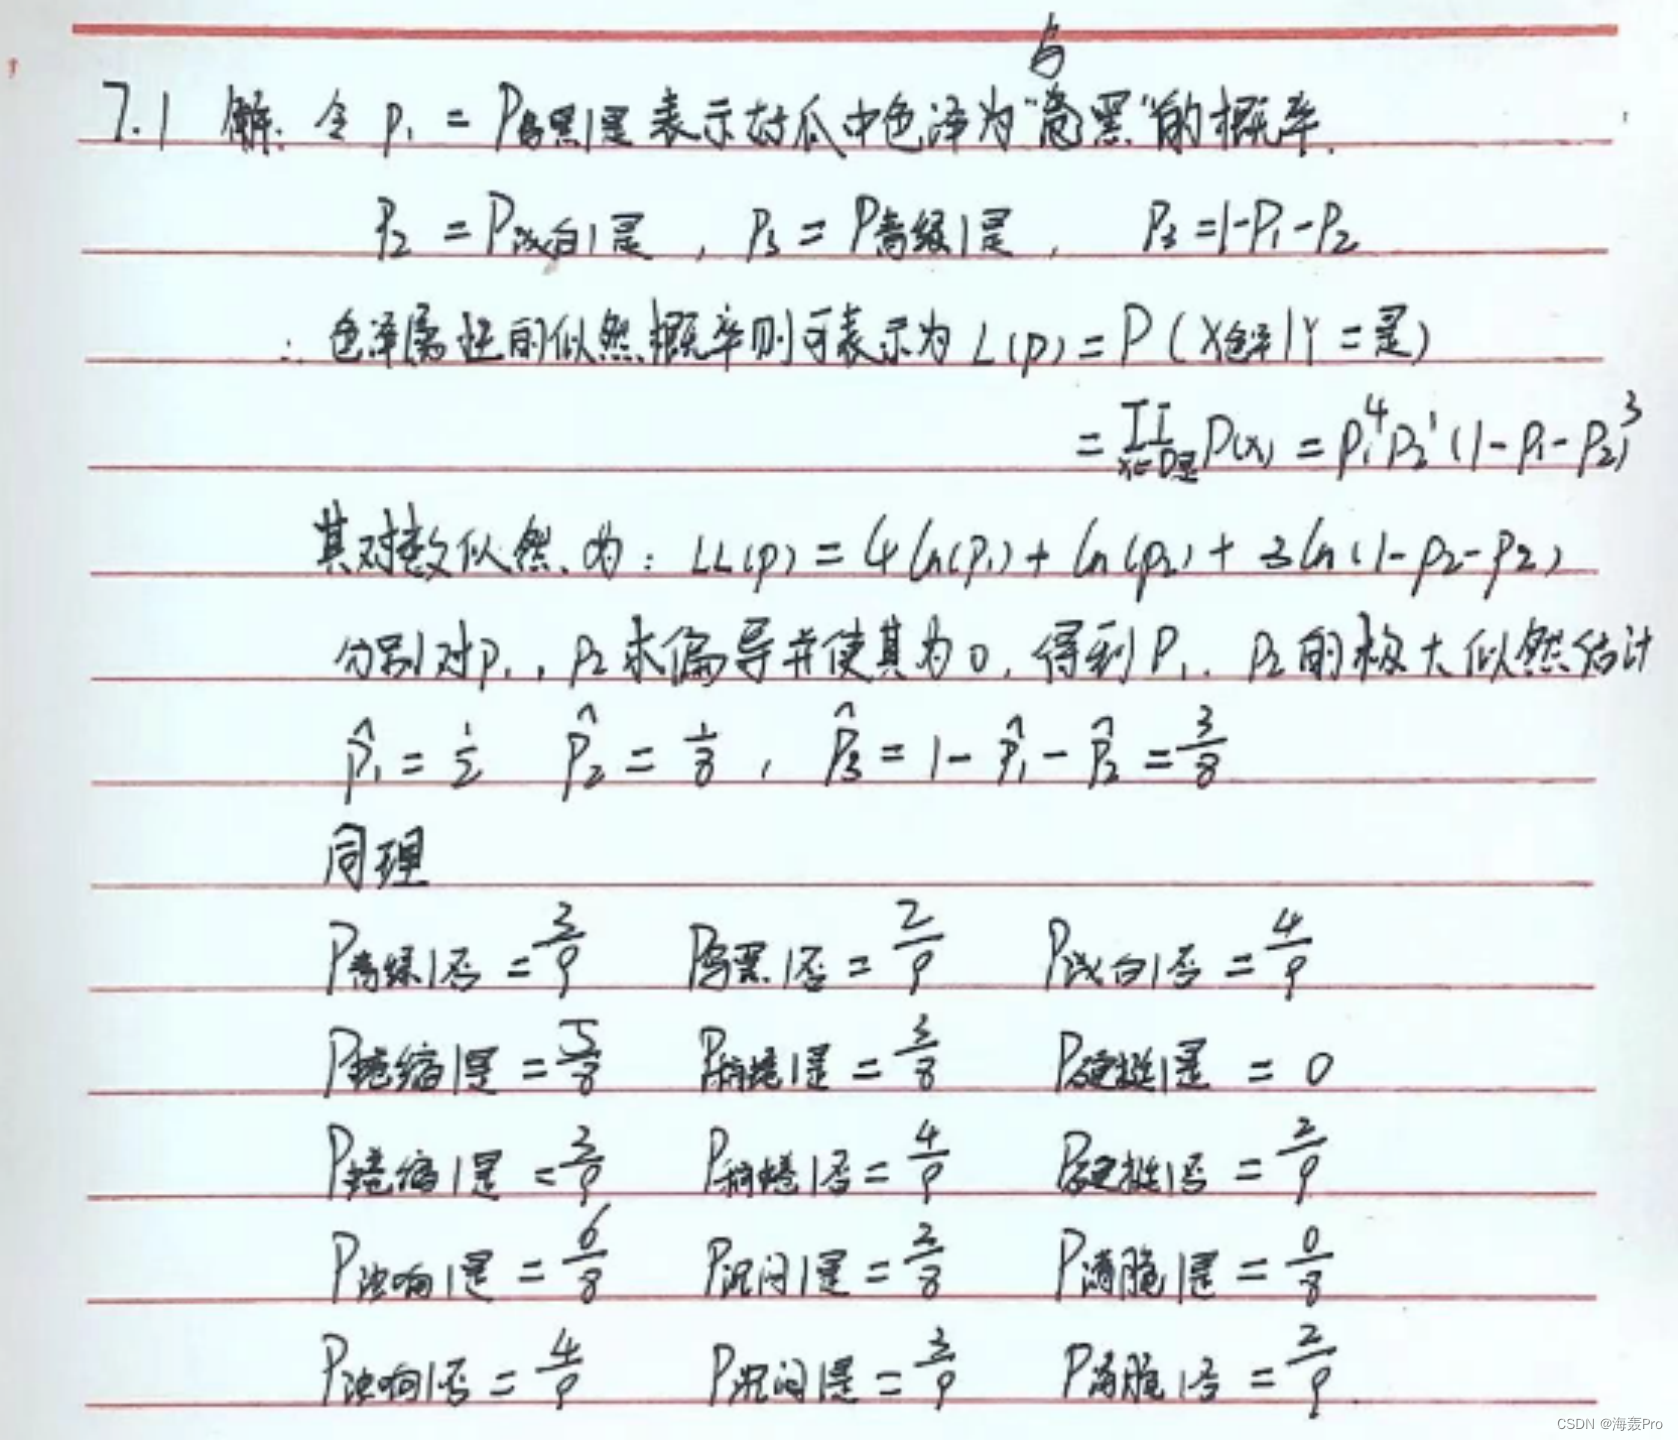 乌
7.1 解: 令 P₁ = P乌黑|是 表示好瓜中色泽为"乌黑"的概率.
P₂ = P浅白|是 , P₃ = P青绿|是 , P₃ = 1-P₁-P₂
∴ 色泽属性的似然概率则可表示为 L(p) = P(X色泽|Y=是)
= ∏x∈D是 P(x) = P₁⁴P₂¹(1-P₁-P₂)³
其对数似然为: LL(p) = 4ln(P₁) + ln(p₂) + 3ln(1-p₂-p₂)
分别对p₁, p₂求偏导并使其为0, 得到P₁. p₂的极大似然估计
p̂₁ = 1/2 p̂₂ = 1/8 , p̂₃ = 1-p̂₁-p̂₂ = 3/8
同理
P青绿|否 = 3/9 P乌黑|否 = 2/9 P浅白|否 = 4/9
P蜷缩|是 = 5/8 P稍蜷|是 = 3/8 P硬挺|是 = 0
P蜷缩|是 = 3/9 P稍蜷|否 = 4/9 P硬挺|否 = 2/9
P浊响|是 = 6/8 P沉闷|是 = 2/8 P清脆|是 = 0/8
P浊响|否 = 4/9 P沉闷|是 = 3/9 P清脆|否 = 2/9
CSDN @海轰Pro